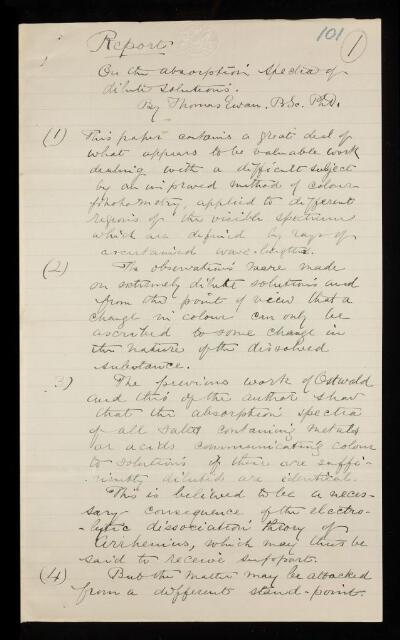 101
1
Report
On the absorption spectra of
dilute solutions.
By Thomas Ewan. B.Sc. Ph.D.
(1) This paper contains a great deal of
what appears to be valuable work
dealing with a difficult subject
by an improved method of colour-
photometry, applied to different
regions of the visible spectrum
which are defined by rays of
ascertained wave-lengths.
(2) The observations were made
on extremely dilute solutions and
from the point of view that a
change in colour can only be
ascribed to some change in
the nature of the dissolved
substance.
3) The previous work of Ostwald
and this of the author show
that the absorption spectra
of all salts containing metals
or acids communicating colour
to solutions if these are suffi-
ciently diluted are identical.
This is believed to be a neces-
sary consequence of the electro-
-lytic dissociation theory of
Arrhenius, which may thus be
said to receive support.
(4) But the matter may be attacked
from a different stand-point.